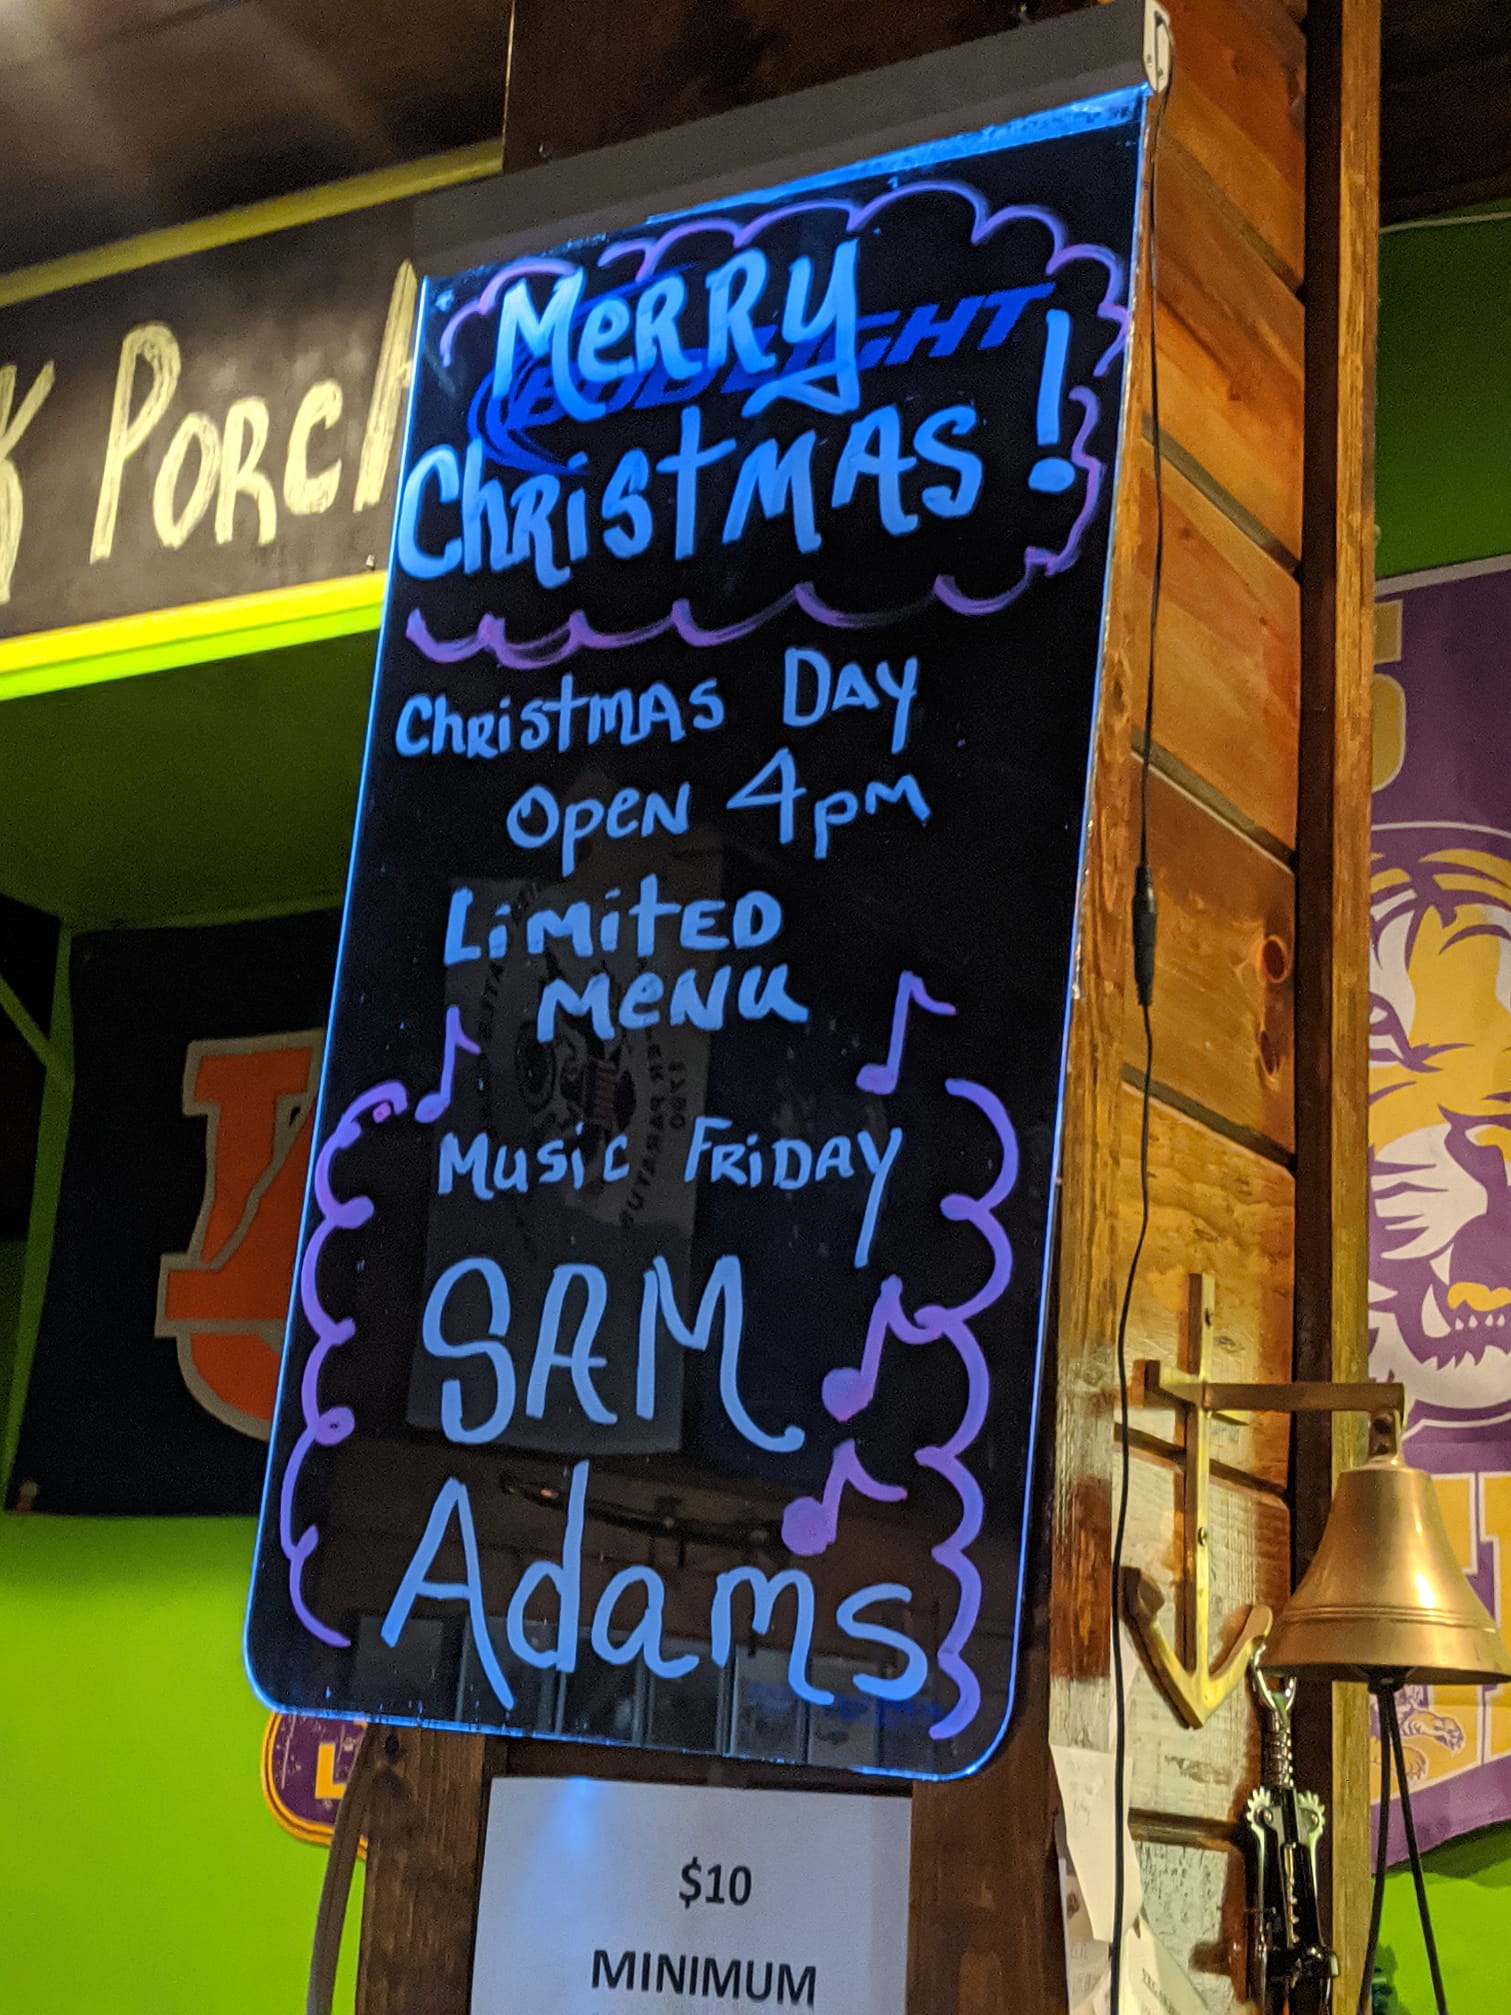 Porch
Merry
BUD LIGHT
Christmas!
Christmas Day
Open 4pm
Limited
Menu
Music Friday
SAM
Adams
$10
MINIMUM